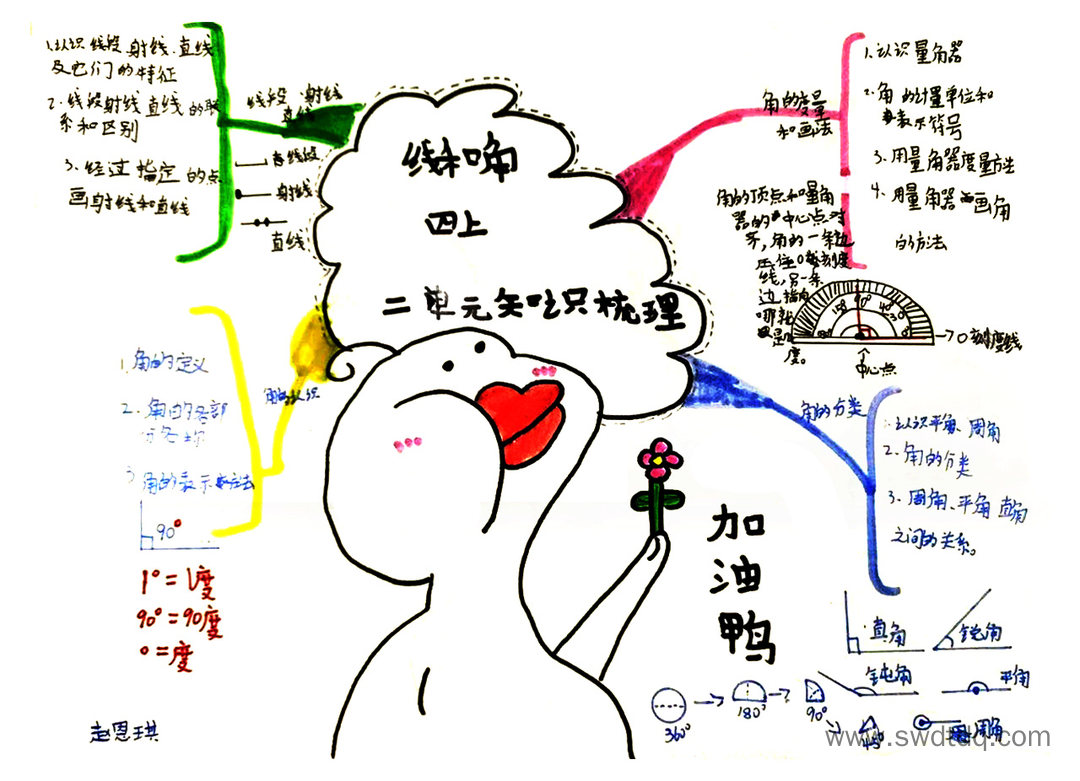 线和角
四上
二单元知识梳理
线段、射线
直线
1.认识线段、射线、直线
及它们的特征
2.线段射线直线的联
系和区别
3.经过指定的点
画射线和直线
射线
直线
角的认识
1.角的定义
2.角的各部
3.角的表示方法
90°
1°=1度
90°=90度
°=度
赵恩琪
角的度量
和画法
1.认识量角器
2.角的计量单位和
表示符号
3.用量角器度量方法
4.用量角器画角
的方法
角的顶点和量角
器的中心点对
齐,角的一条边
压住0刻度
线,另一条
边指向
哪就
是几
度。
0刻度线
中心点
角的分类
1.认识平角、周角
2.角的分类
3.周角、平角直角
之间的关系。
加
油
鸭
直角
锐角
钝角
平角
周角
360°
180°
90°
45°
www.swdtdq.com